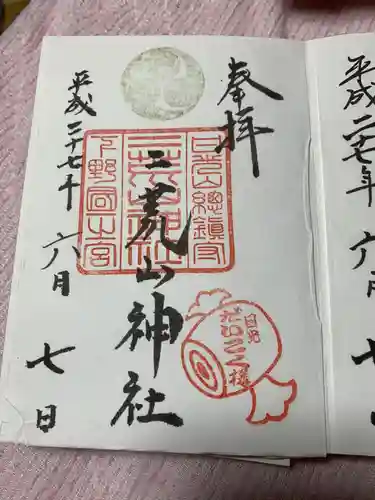 奉拝
二荒山神社
平成二十七年 六月 七日
日光山總鎮守
二荒山神社
下野國一之宮
日光
だいこく様
平成二七年 六月 七